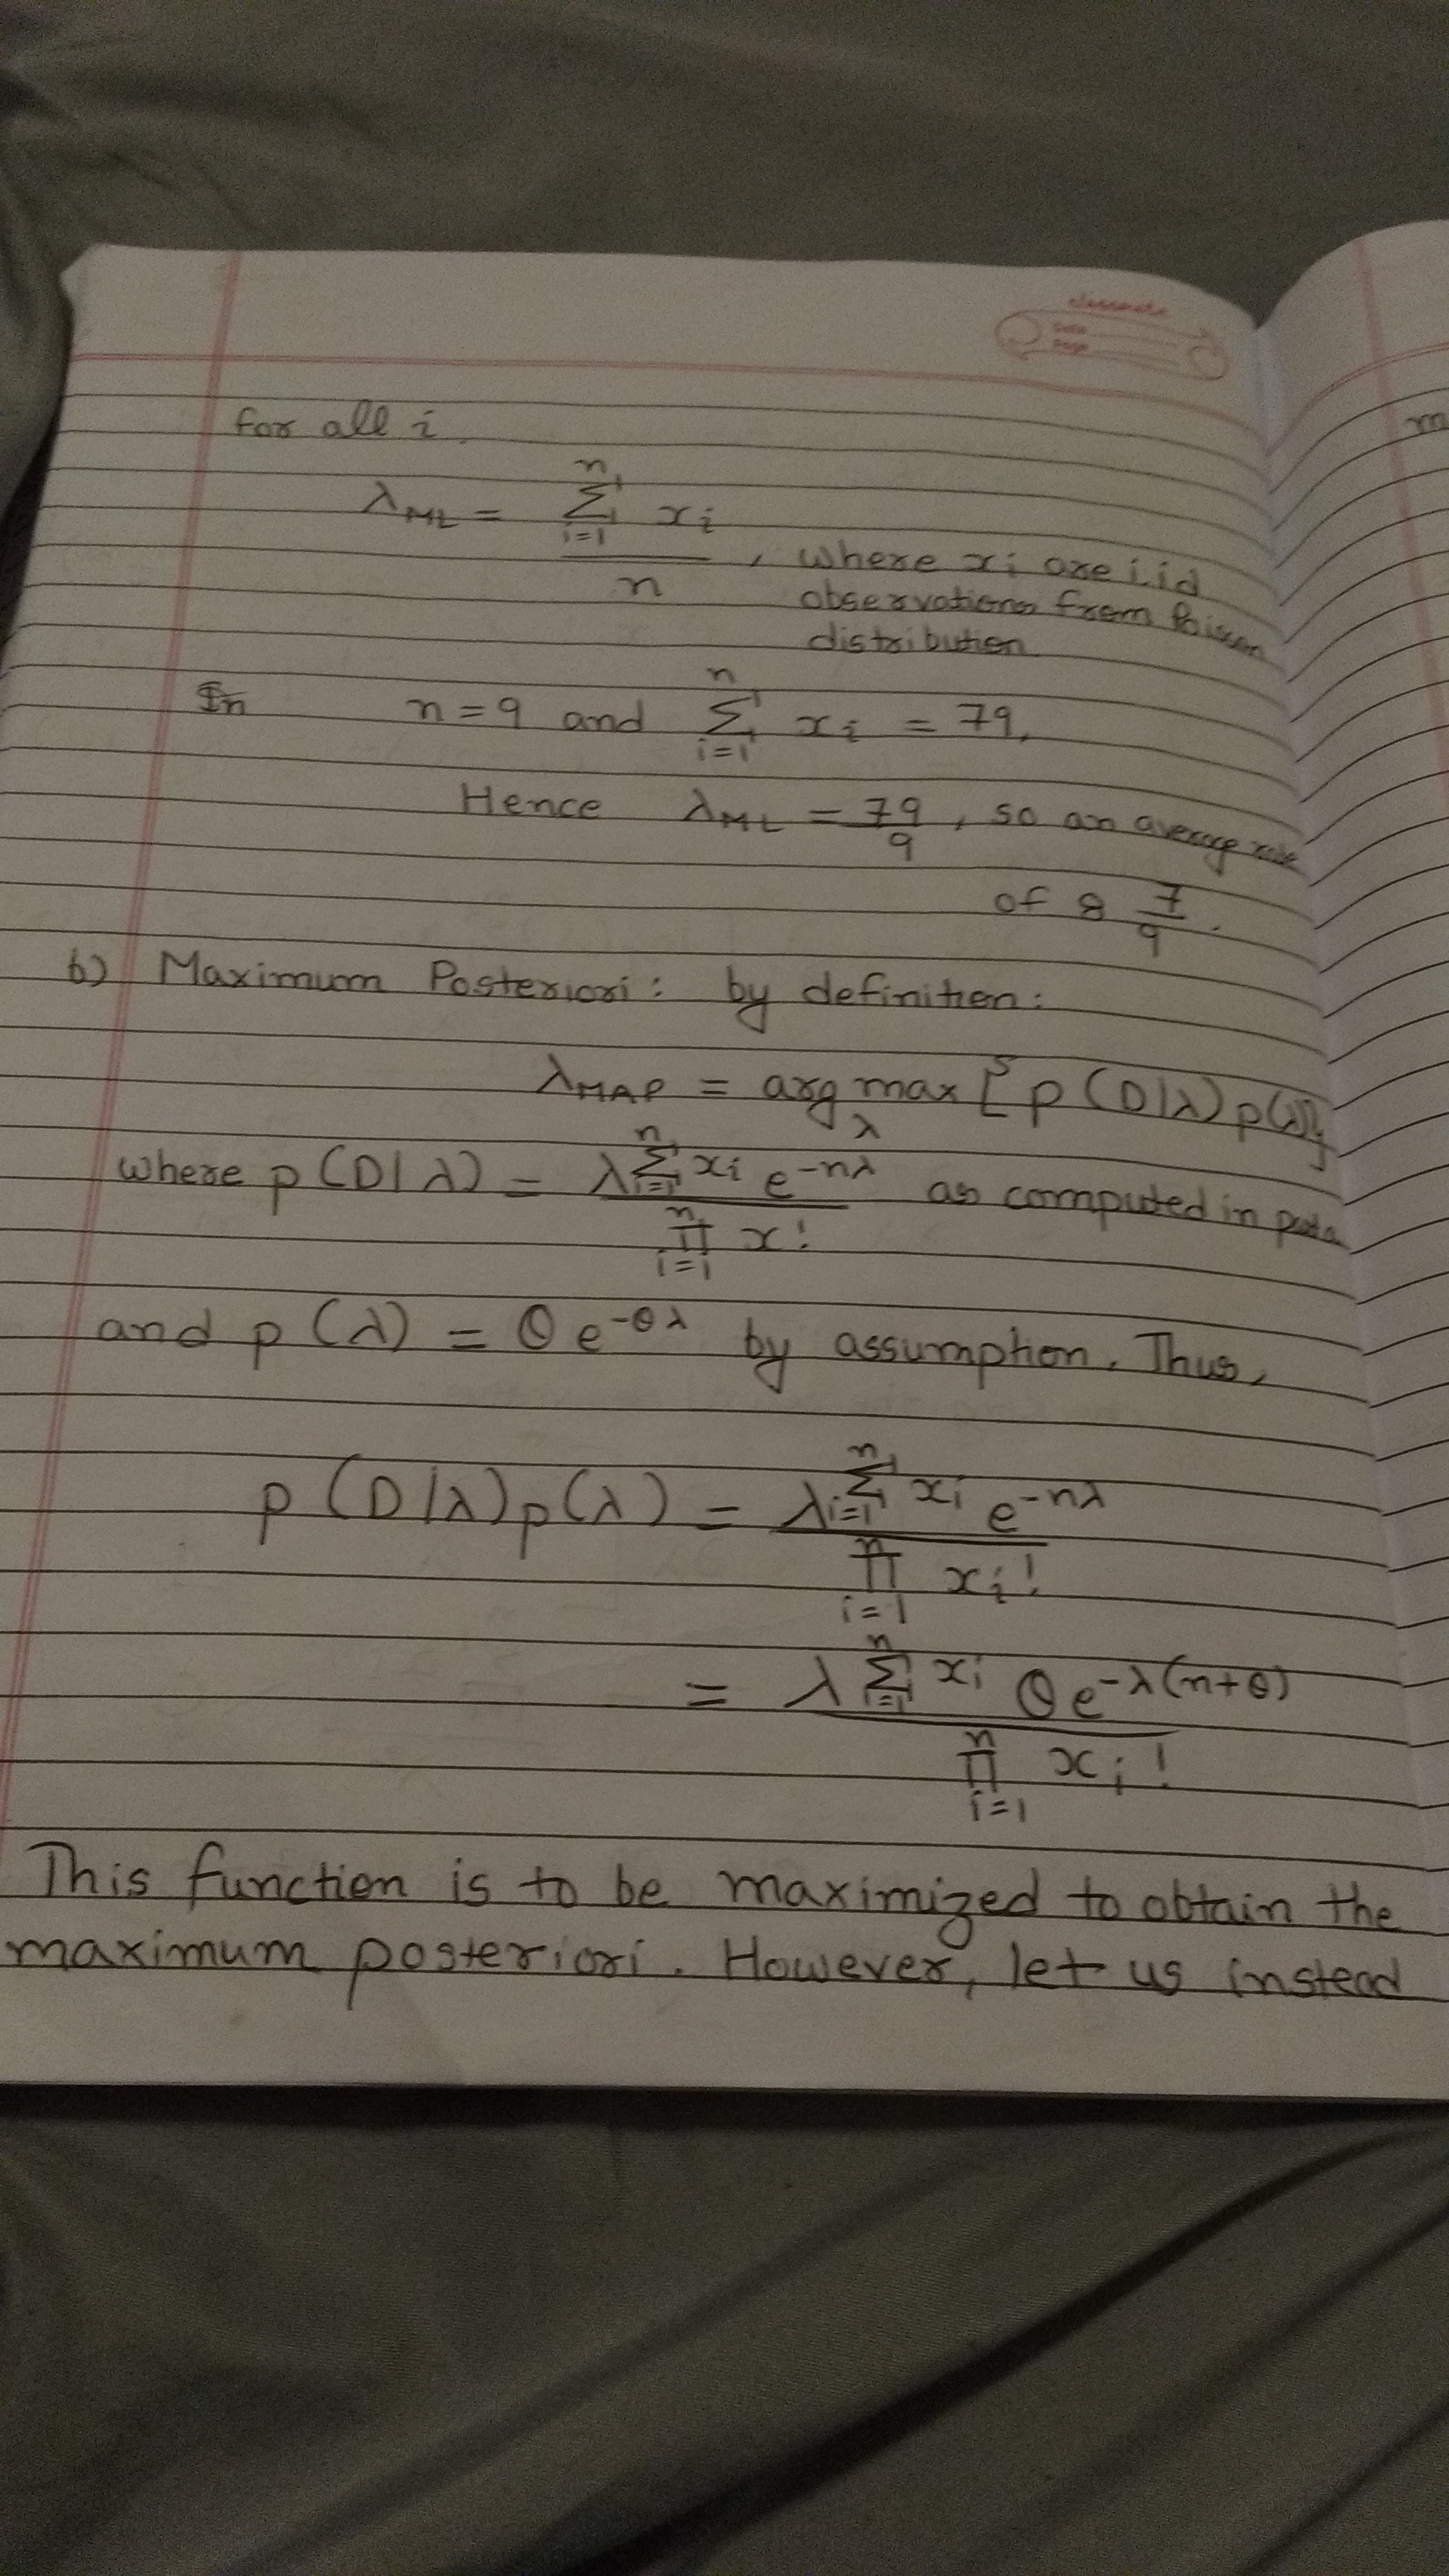 classmate
Date
Page
for all i
λ_ML = \frac{\sum_{i=1}^{n} x_i}{n}, where x_i are i.i.d
observations from Poisson
distribution.
n = 9 and \sum_{i=1}^{n} x_i = 79,
Hence λ_ML = \frac{79}{9}, so an average rate
of 8 \frac{7}{9}.
b) Maximum Posteriori: by definition:
λ_MAP = arg max_λ { p(D|λ) p(λ)}
where p(D|λ) = \frac{λ^{\sum_{i=1}^{n} x_i} e^{-nλ}}{\prod_{i=1}^{n} x!} as computed in part a
and p(λ) = θe^{-θλ} by assumption. Thus,
p(D|λ)p(λ) = \frac{λ^{\sum_{i=1}^{n} x_i} e^{-nλ}}{\prod_{i=1}^{n} x_i!}
= \frac{λ^{\sum_{i=1}^{n} x_i} θe^{-λ(n+θ)}}{\prod_{i=1}^{n} x_i!}
This function is to be maximized to obtain the
maximum posteriori. However, let us instead